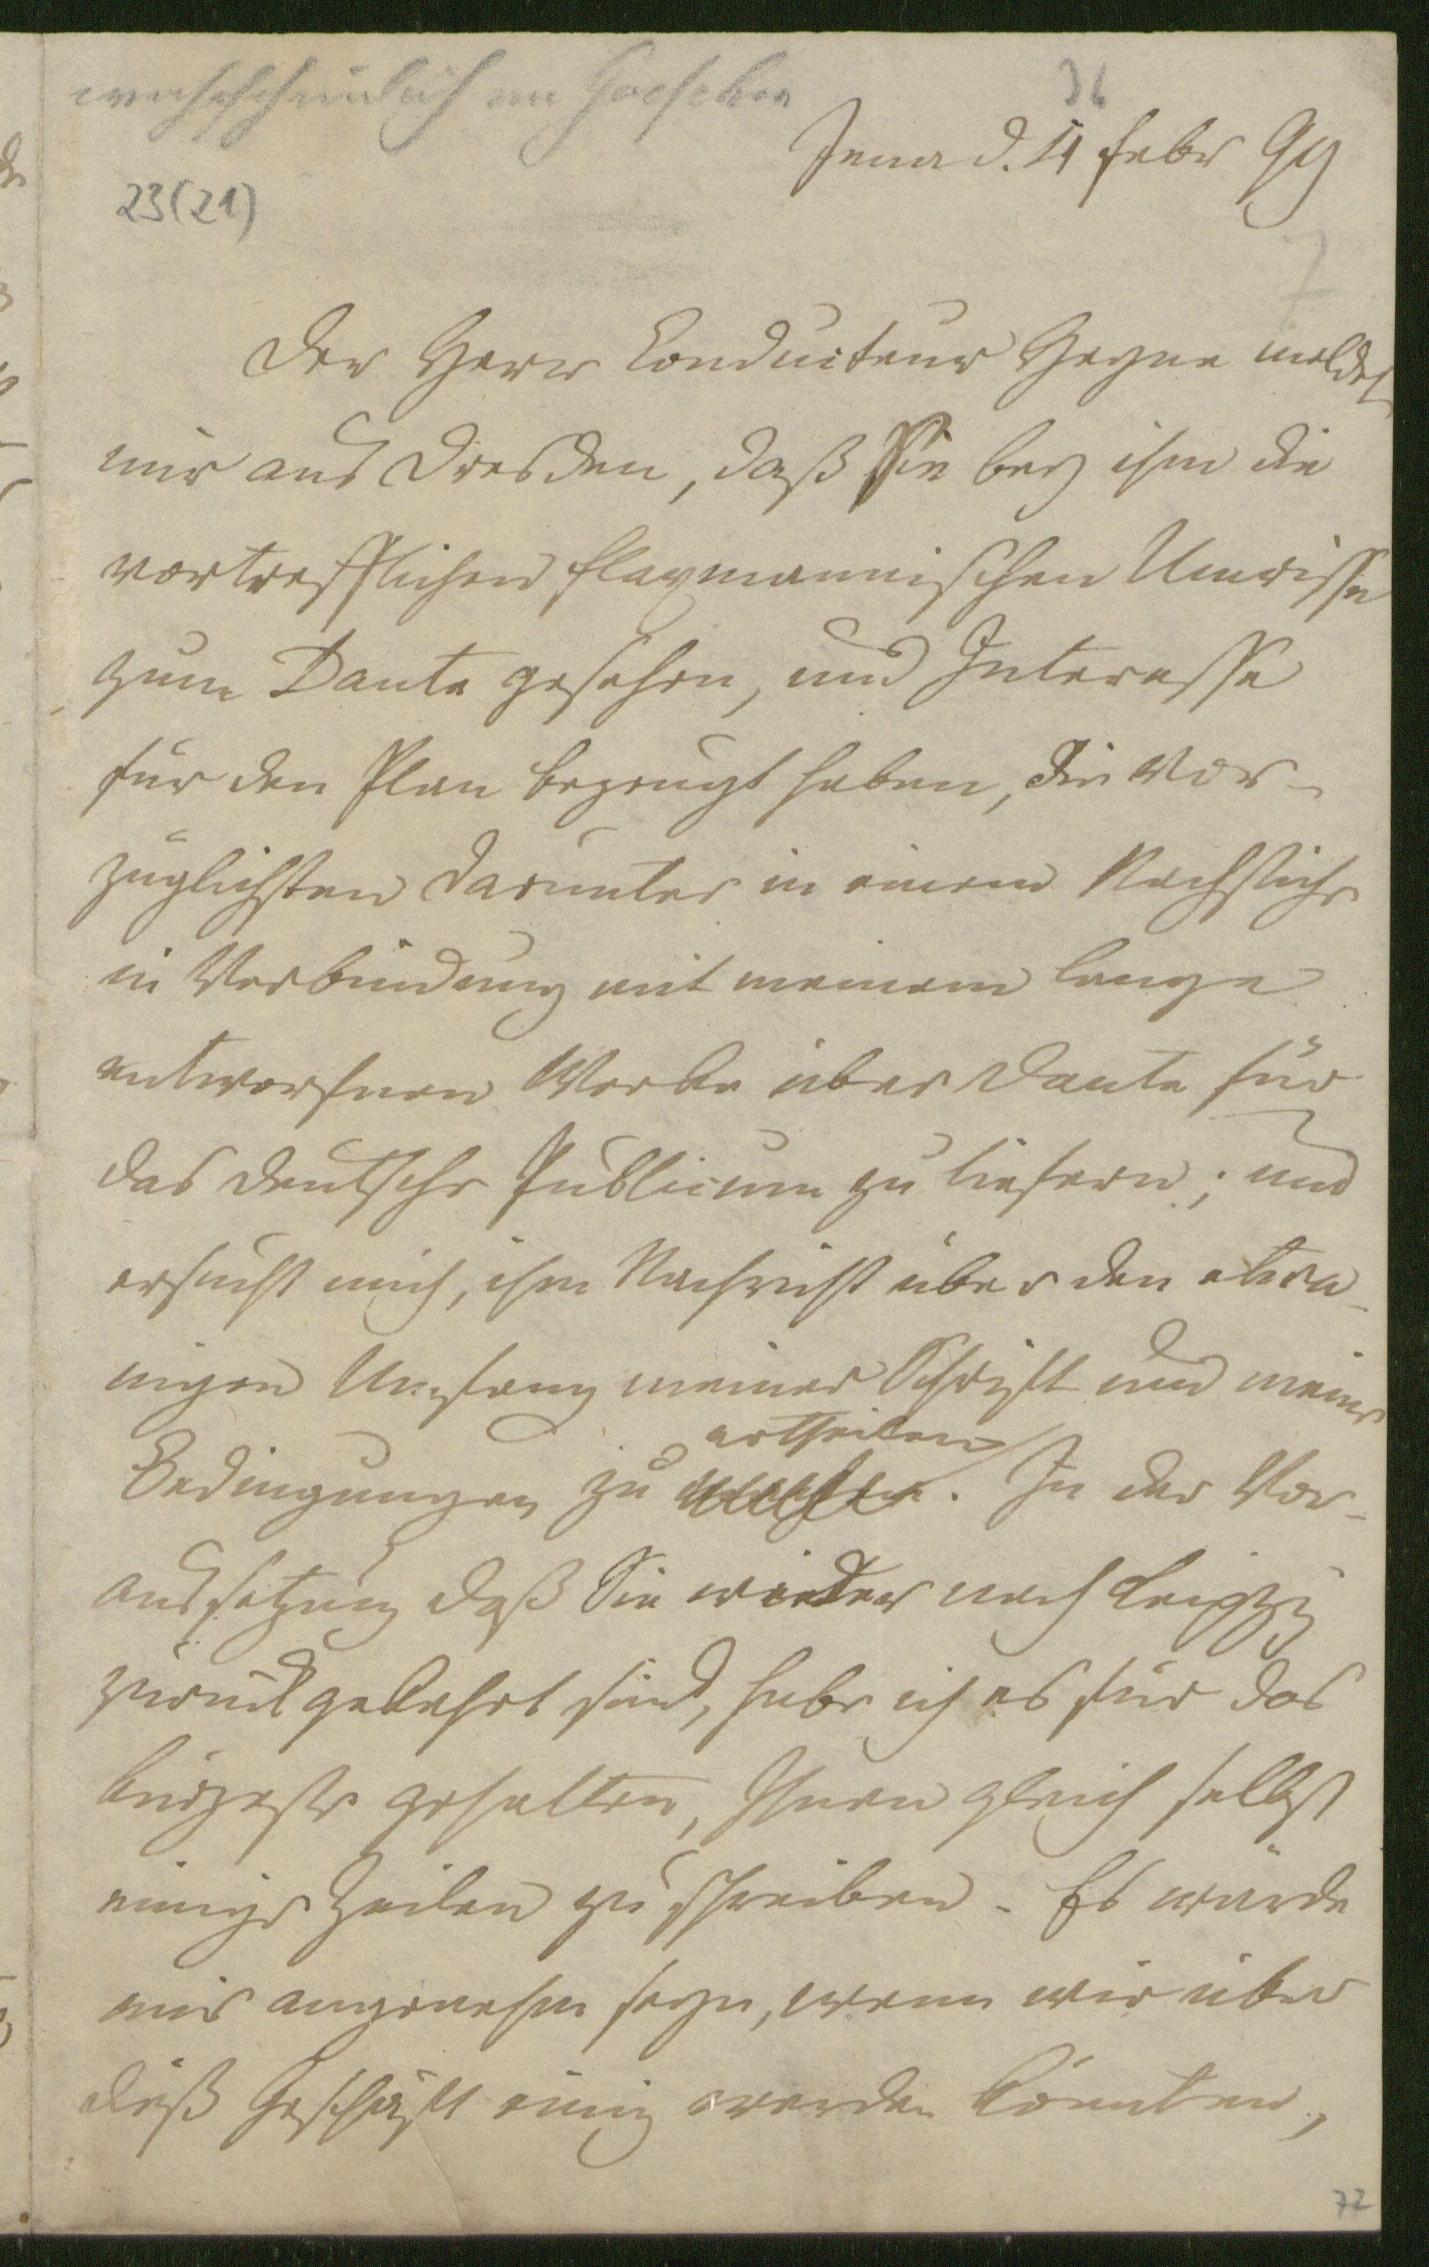 wahrscheinlich an Goeschen
36
Jena d. 11 Febr 99
23(21)
7
Der Herr Conducteur Hegne meldet
mir aus Dresden, daß Sie bey ihm die
vortrefflichen Flaxmannischen Umrisse
zum Dante gesehen, und Interesse
für den Plan bezeugt haben, die vor-
züglichsten darunter in einem Nachstiche
in Verbindung mit meinem lange
entworfnen Werke über Dante für
das deutsche Publicum zu liefern; und
ersucht mich, ihm Nachricht über den etwa-
nigen Umfang meiner Schrift und meine
ertheilen
Bedingungen zu . In der Vor-
aussetzung daß Sie wieder nach Leipzig
zurückgekehrt sind, habe ich es für das
kürzeste gehalten, Ihnen gleich selbst
einige Zeilen zu schreiben. Es würde
mir angenehm seyn, wenn wir über
dieß Geschäft einig werden könnten,
72